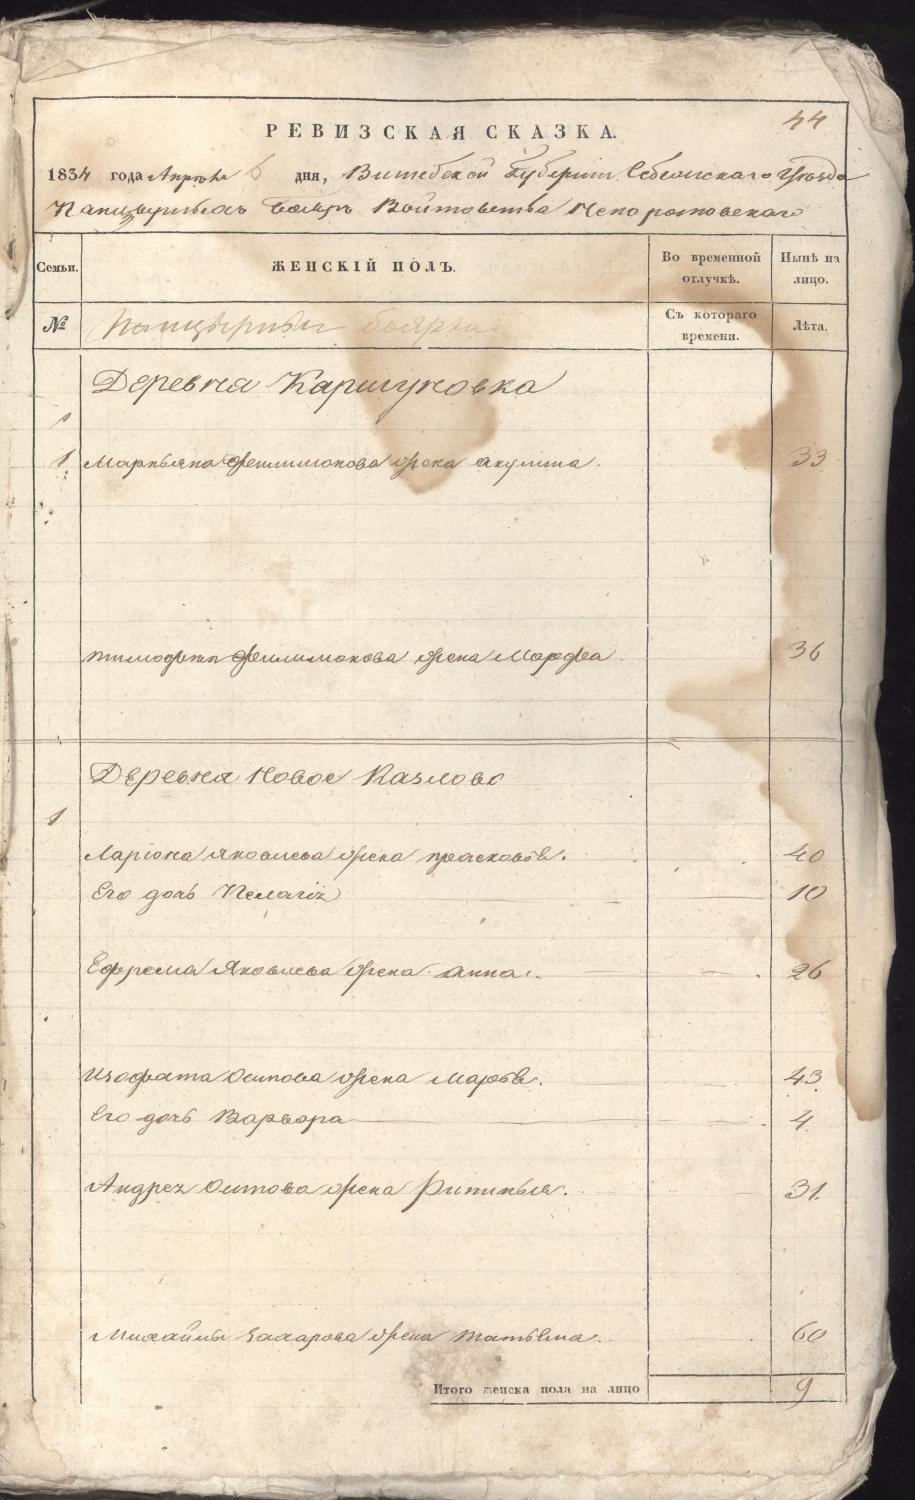 44
РЕВИЗСКАЯ СКАЗКА.
1834 года Апреля 6 дня, Витебской Губернiи Себежскаго Уѣзда
Панцырныхъ Бояръ Войтовства Непоротовскаго
Семьи. ЖЕНСКIЙ ПОЛЪ. Во временной отлучкѣ. Нынѣ на лицо.
№ Панцырныи бояры Съ котораго времени. Лѣта.
Деревня Каршуновка
1
1 Мартьяна Филимонова жена Акулина. 33
Тимофѣя Филимонова жена Марфа 36
Деревня Новое Казлово
1
Ларiона Яковлева жена Прасковья. 40
Его дочь Пелагiя 10
Ефрема Яковлева жена Анна. 26
Изофата Осипова жена Марья. 43
Его дочь Варвара 4
Андрея Осипова жена 31.
Михайлы Захарова жена Татьяна. 60
Итого женска пола на лицо 9